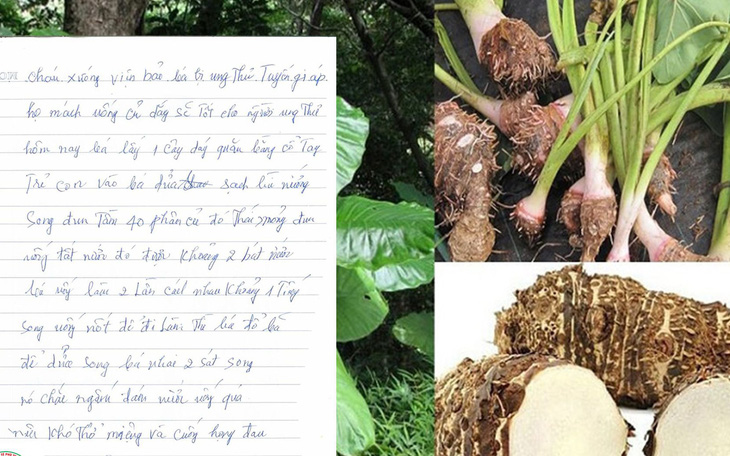 cháu xuống viện bảo bá bị ung Thư Tuyến giáp
họ mách uống củ dáy sẽ Tốt cho người ung Thư
hôm nay bá lấy 1 cây dáy quấn bằng cổ Tay
Trẻ con vào bá rửa sạch bá nướng
Song đun Tầm 40 phần củ đó Thái mỏng đun
uống tất nước đó được Khoảng 2 bát nước
bá uống làm 2 Lần cách nhau Khoảng 1 Tiếng
Song uống nốt để đi Làm. Thì bá đổ bã
để rửa song bá nhai 2 sát song
nó chắc ngấm đám nước uống quá
nên Khó Thở miệng và cuống họng đau